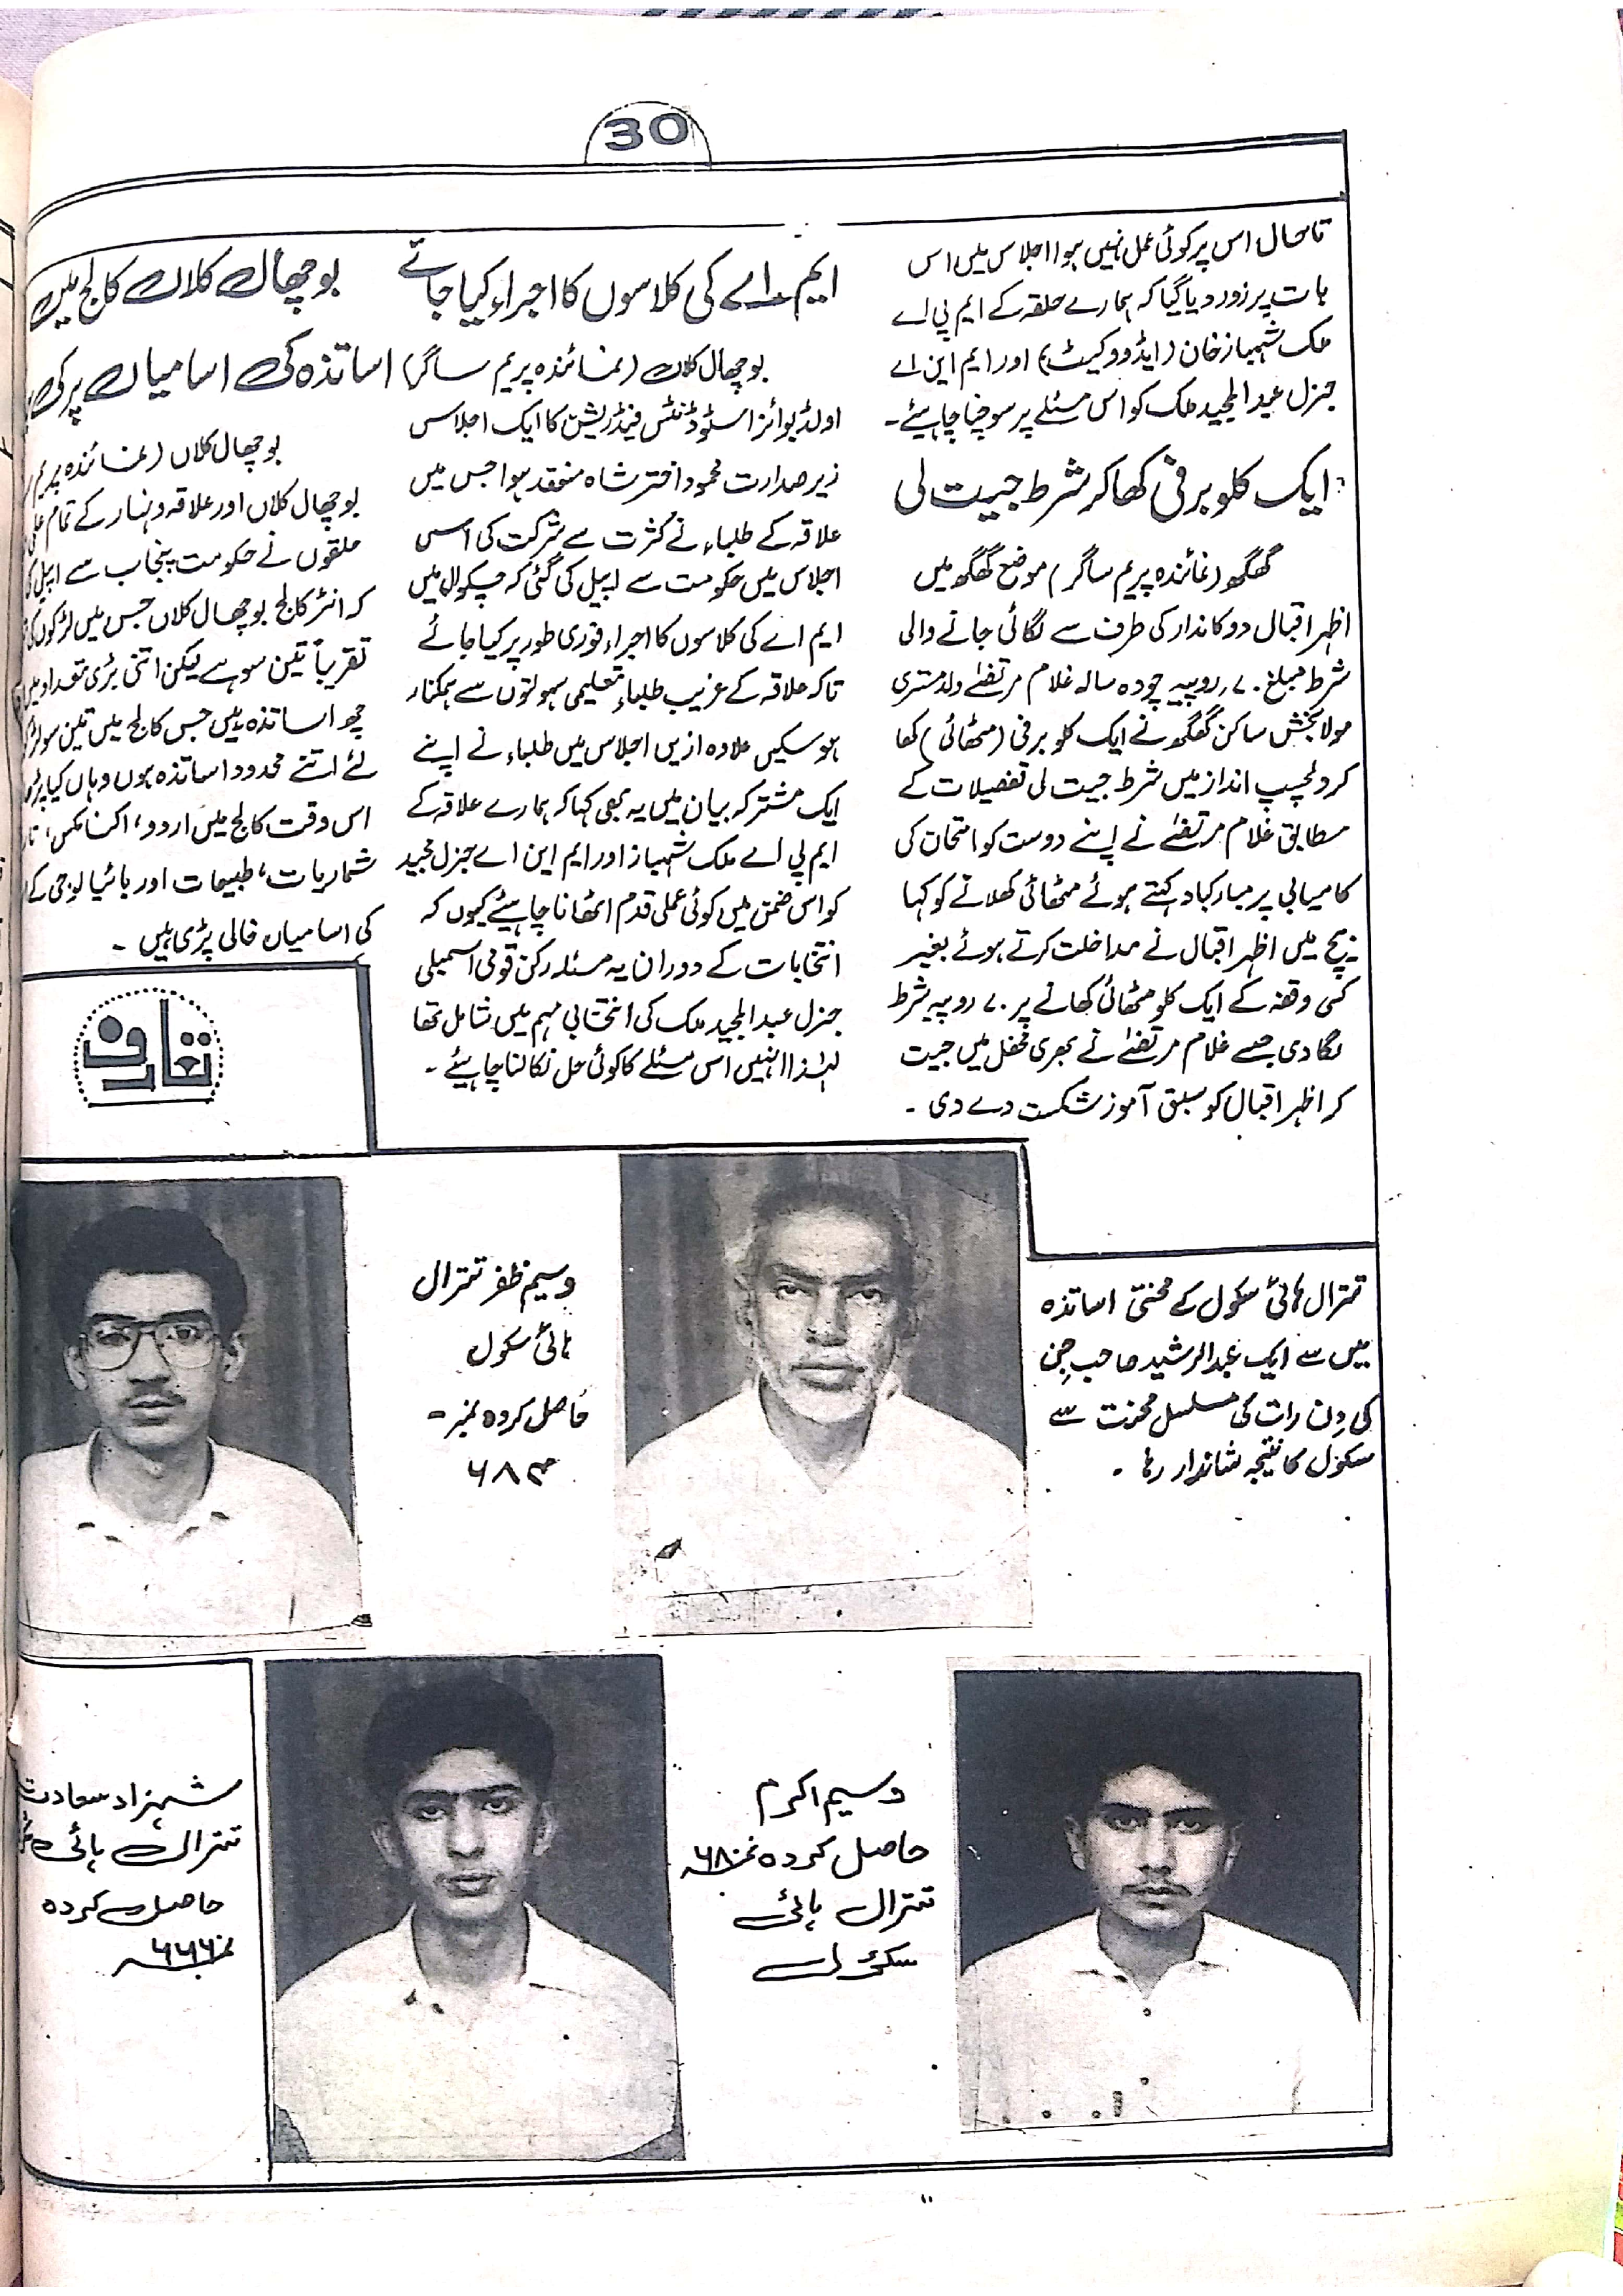 30
تاحال اس پر کوئی عمل نہیں ہوا اجلاس میں اس
بات پر زور دیا گیا کہ ہمارے حلقہ کے ایم پی اے
ملک شہباز خان (ایڈووکیٹ) اور ایم این اے
جنرل عبدالمجید ملک کو اس مسئلے پر سوچنا چاہیئے۔
ایک کلو برفی کھا کر شرط جیت لی
گھگھ (نمائندہ پریم ساگر) موضع گھگھ میں
اظہر اقبال دوکاندار کی طرف سے لگائی جانے والی
شرط مبلغ ۷۰ روپیہ چودہ سالہ غلام مرتضےٰ ولد مستری
مولا بخش ساکن گھگھ نے ایک کلو برفی (مٹھائی) کھا
کر دلچسپ انداز میں شرط جیت لی تفصیلات کے
مطابق غلام مرتضےٰ نے اپنے دوست کو امتحان کی
کامیابی پر مبارکباد کہتے ہوئے مٹھائی کھلانے کو کہا
بیچ میں اظہر اقبال نے مداخلت کرتے ہوئے بغیر
کسی وقفہ کے ایک کلو مٹھائی کھانے پر ۷۰ روپیہ شرط
لگا دی جسے غلام مرتضےٰ نے بھری محفل میں جیت
کر اظہر اقبال کو سبق آموز شکست دے دی ۔
ایم۔اے کی کلاسوں کا اجراء کیا جائے
بوچھال کلاں (نمائندہ پریم ساگر)
اولڈ بوائز اسٹوڈنٹس فیڈریشن کا ایک اجلاس
زیر صدارت محمود اختر شاہ منعقد ہوا جس میں
علاقہ کے طلباء نے کثرت سے شرکت کی اس
اجلاس میں حکومت سے اپیل کی گئی کہ چکوال میں
ایم اے کی کلاسوں کا اجراء فوری طور پر کیا جائے
تاکہ علاقہ کے غریب طلباء تعلیمی سہولتوں سے ہمکنار
ہو سکیں علاوہ ازیں اجلاس میں طلباء نے اپنے
ایک مشترکہ بیان میں یہ بھی کہا کہ ہمارے علاقہ کے
ایم پی اے ملک شہباز اور ایم این اے جنرل مجید
کو اس ضمن میں کوئی عملی قدم اٹھانا چاہیئے کیوں کہ
انتخابات کے دوران یہ مسئلہ رکن قومی اسمبلی
جنرل عبدالمجید ملک کی انتخابی مہم میں شامل تھا
لہٰذا انہیں اس مسئلے کا کوئی حل نکالنا چاہیئے ۔
بوچھال کلاں کالج میں
اساتذہ کی اسامیاں پر کی
بوچھال کلاں (نمائندہ پریم
بوچھال کلاں اور علاقہ ونہار کے تمام
حلقوں نے حکومت پنجاب سے اپیل کی
کہ انٹر کالج بوچھال کلاں جس میں لڑکوں کی
تقریباً تین سو ہے لیکن اتنی بڑی تعداد میں
چھ اساتذہ ہیں جس کالج میں تین سو
لئے اتنے محدود اساتذہ ہوں وہاں کیا
اس وقت کالج میں اردو، اکنامکس،
شماریات، طبیعات اور بائیالوجی کے
کی اسامیاں خالی پڑی ہیں ۔
تعارف
تترال ہائی سکول کے محنتی اساتذہ
میں سے ایک عبدالرشید صاحب جن
کی دن رات کی مسلسل محنت سے
سکول کا نتیجہ شاندار رہا ۔
وسیم ظفر تترال
ہائی سکول
حاصل کردہ نمبر ۔
۶۸۳
وسیم اکرم
حاصل کردہ نمبر ۶۸۰
تترال ہائی
سکول
شہزاد سعادت
تترال ہائی
حاصل کردہ
نمبر ۶۶۶